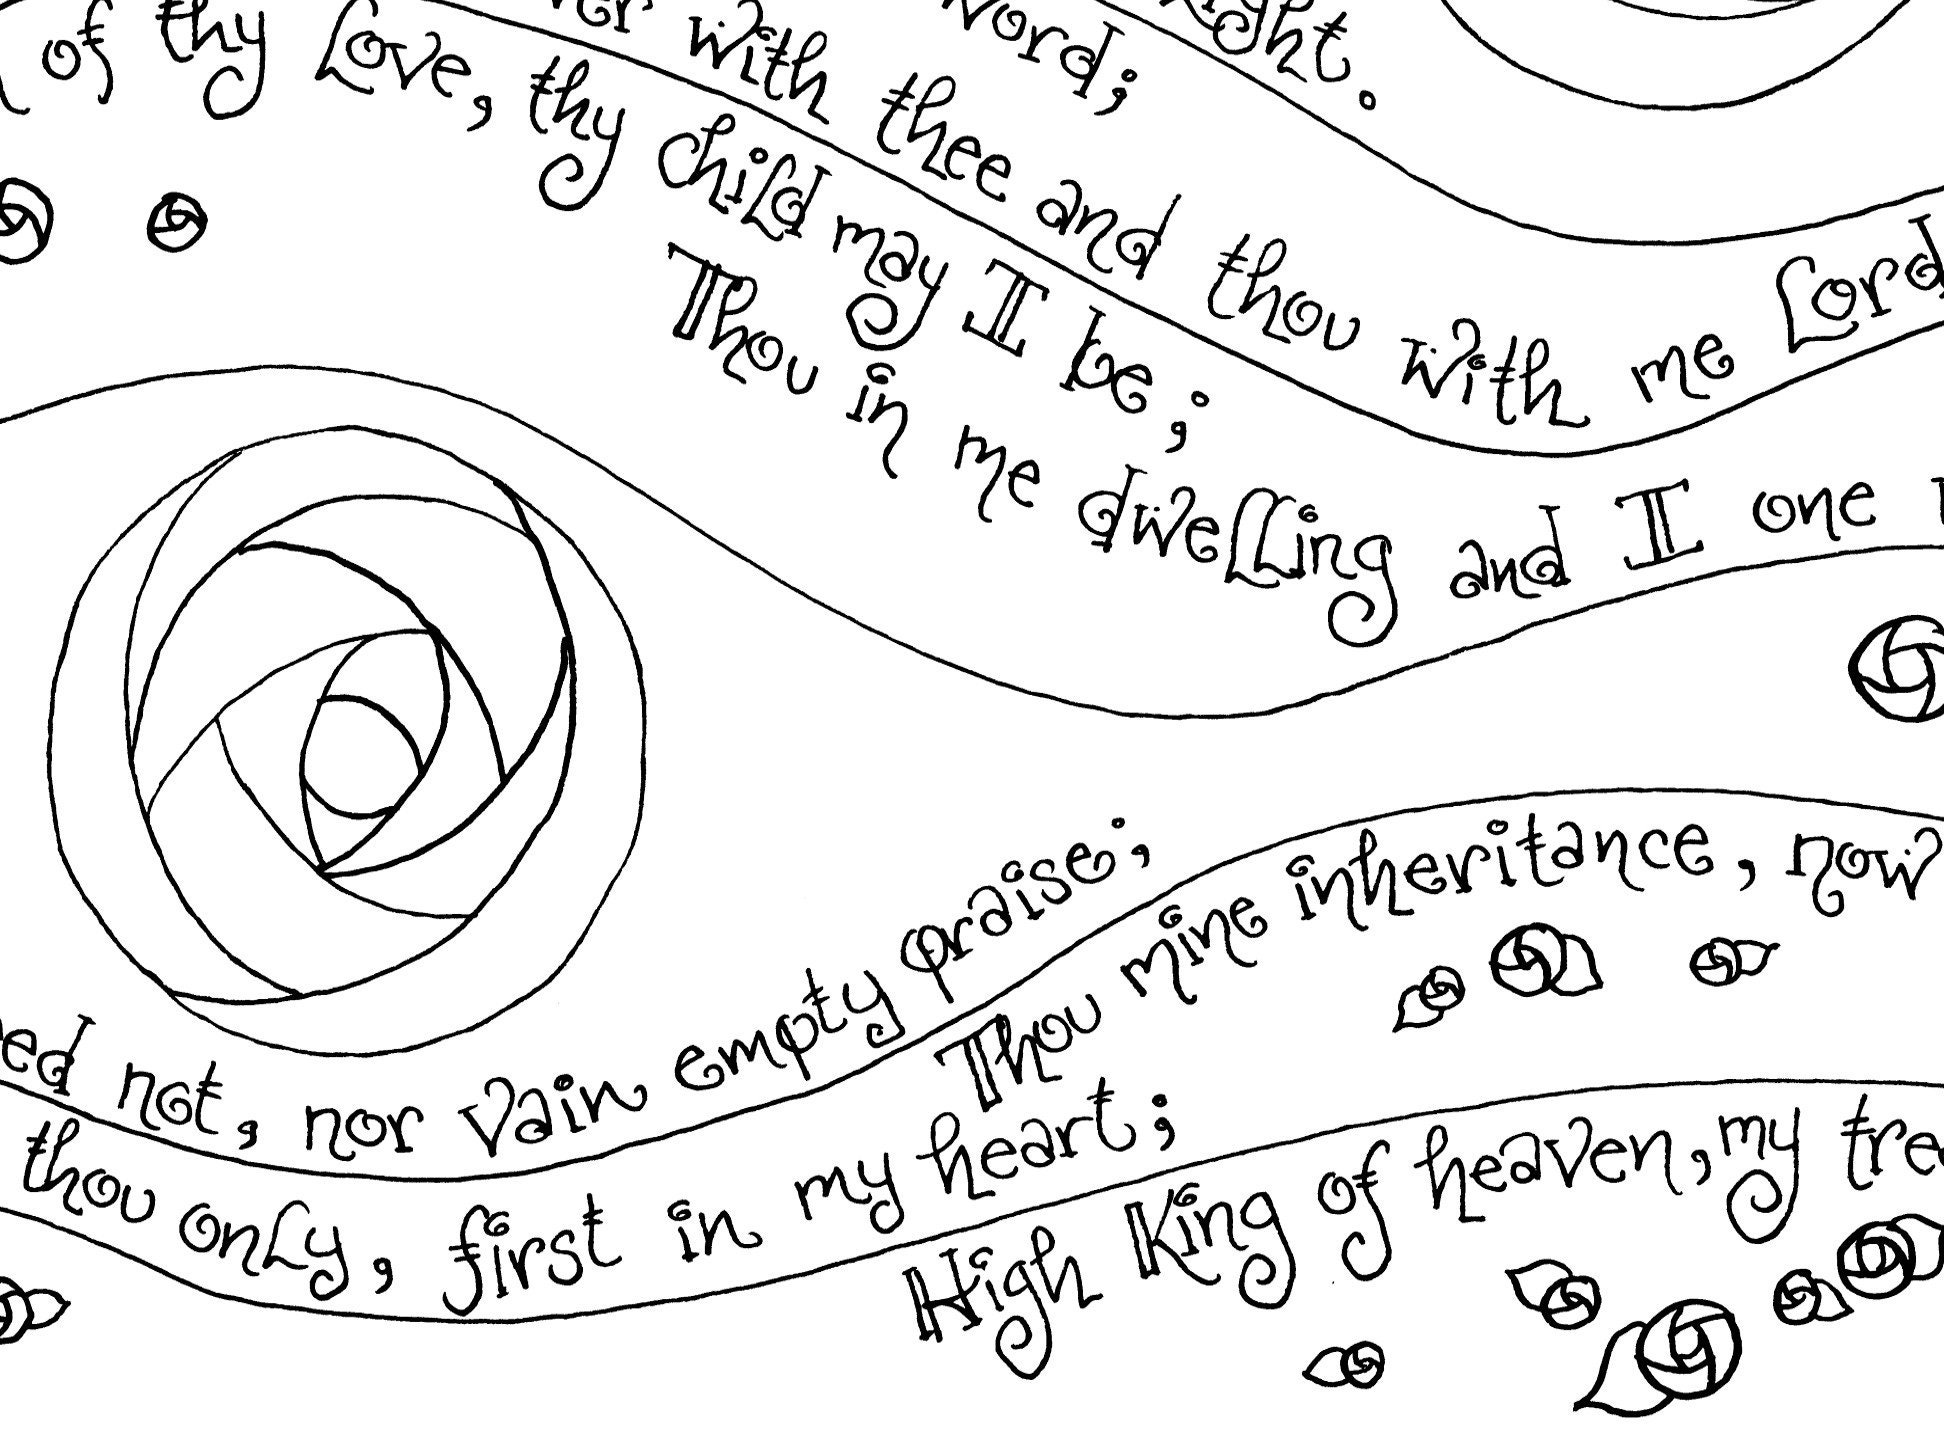 with thee and thou with me Lord,
of thy love, thy child may I be;
Thou in me dwelling and I one
not, nor vain empty praise;
Thou mine inheritance, now
thou only, first in my heart;
High King of heaven, my